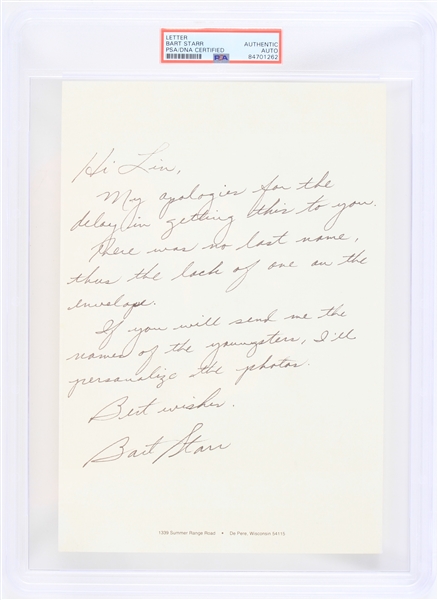 LETTER
BART STARR
PSA/DNA CERTIFIED
AUTHENTIC
AUTO
84701262
PSA
Hi Lin,
My apologies for the
delay in getting this to you.
There was no last name,
thus the lack of one on the
envelope.
If you will send me the
names of the youngsters, I'll
personalize the photos.
Best wishes.
Bart Starr
1339 Summer Range Road • De Pere, Wisconsin 54115